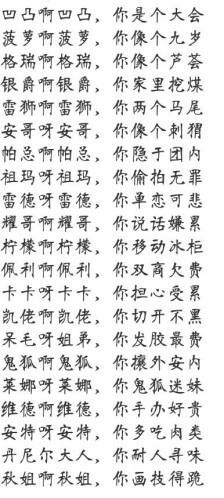 凹凸啊凹凸，你是个大会
菠萝啊菠萝，你像个九岁
格瑞啊格瑞，你像个芦荟
银爵啊银爵，你家里挖煤
雷狮啊雷狮，你两个马尾
安哥呀安哥，你是个刺猬
帕总啊帕总，你隐于团内
祖玛呀祖玛，你偷拍无罪
雷德呀雷德，你单恋可悲
耀哥啊耀哥，你说话嫌累
柠檬啊柠檬，你移动冰柜
佩利啊佩利，你双商欠费
卡卡呀卡卡，你担心受累
凯佬啊凯佬，你切开不黑
呆毛呀姐弟，你发胶最费
鬼狐啊鬼狐，你攘外安内
莱娜呀莱娜，你鬼狐迷妹
维德啊维德，你手办好贵
安特呀安特，你多吃肉类
丹尼尔大人，你耐人寻味
秋姐呀秋姐，你画技得跪